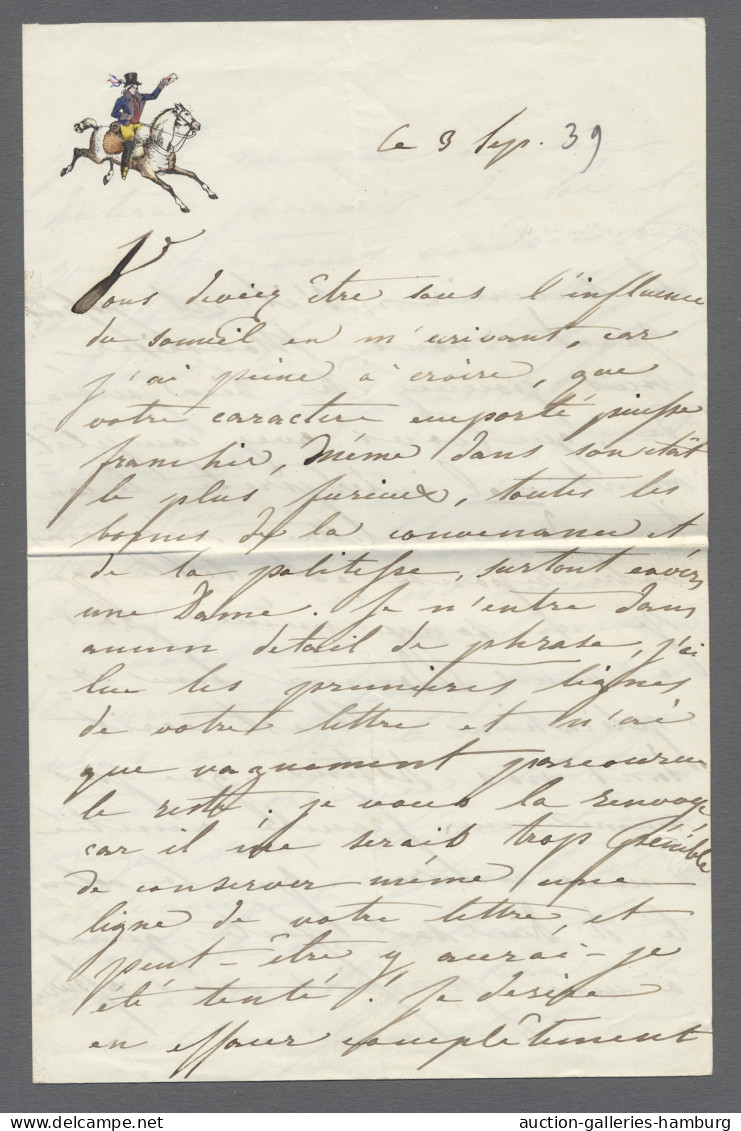 Ce 3 Sep. 39
Vous deviez être sous l'influence
du someil en m'ecrivant, car
j'ai peine a croire, que
votre caractere emporté puisse
franchir, même dans son état
le plus furieux, toutes les
bornes de la convenance et
de la politesse, surtout envers
une Dame. Je n'entre dans
aucun detail de phrase, j'ai
lue les premieres lignes
de votre lettre et n'ai
que vaguement parcourue
le reste; je vous la renvoye
car il me serait trop pénible
de conserver même une
ligne de votre lettre, et
peut-être y aurai-je
été tenté. Je desire
en effacer complêtement
auction-galleries-hamburg